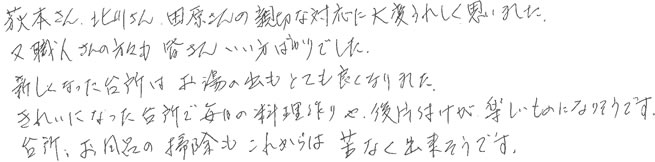 荻本さん、北川さん、田原さんの親切な対応に大変うれしく思いました。
又職人さんの方々も皆さんいい方ばかりでした。
新しくなった台所はお湯の出もとても良くなりました。
きれいになった台所で毎日の料理作りや、後片付けが楽しいものになりそうです。
台所、お風呂の掃除もこれからは苦なく出来そうです。